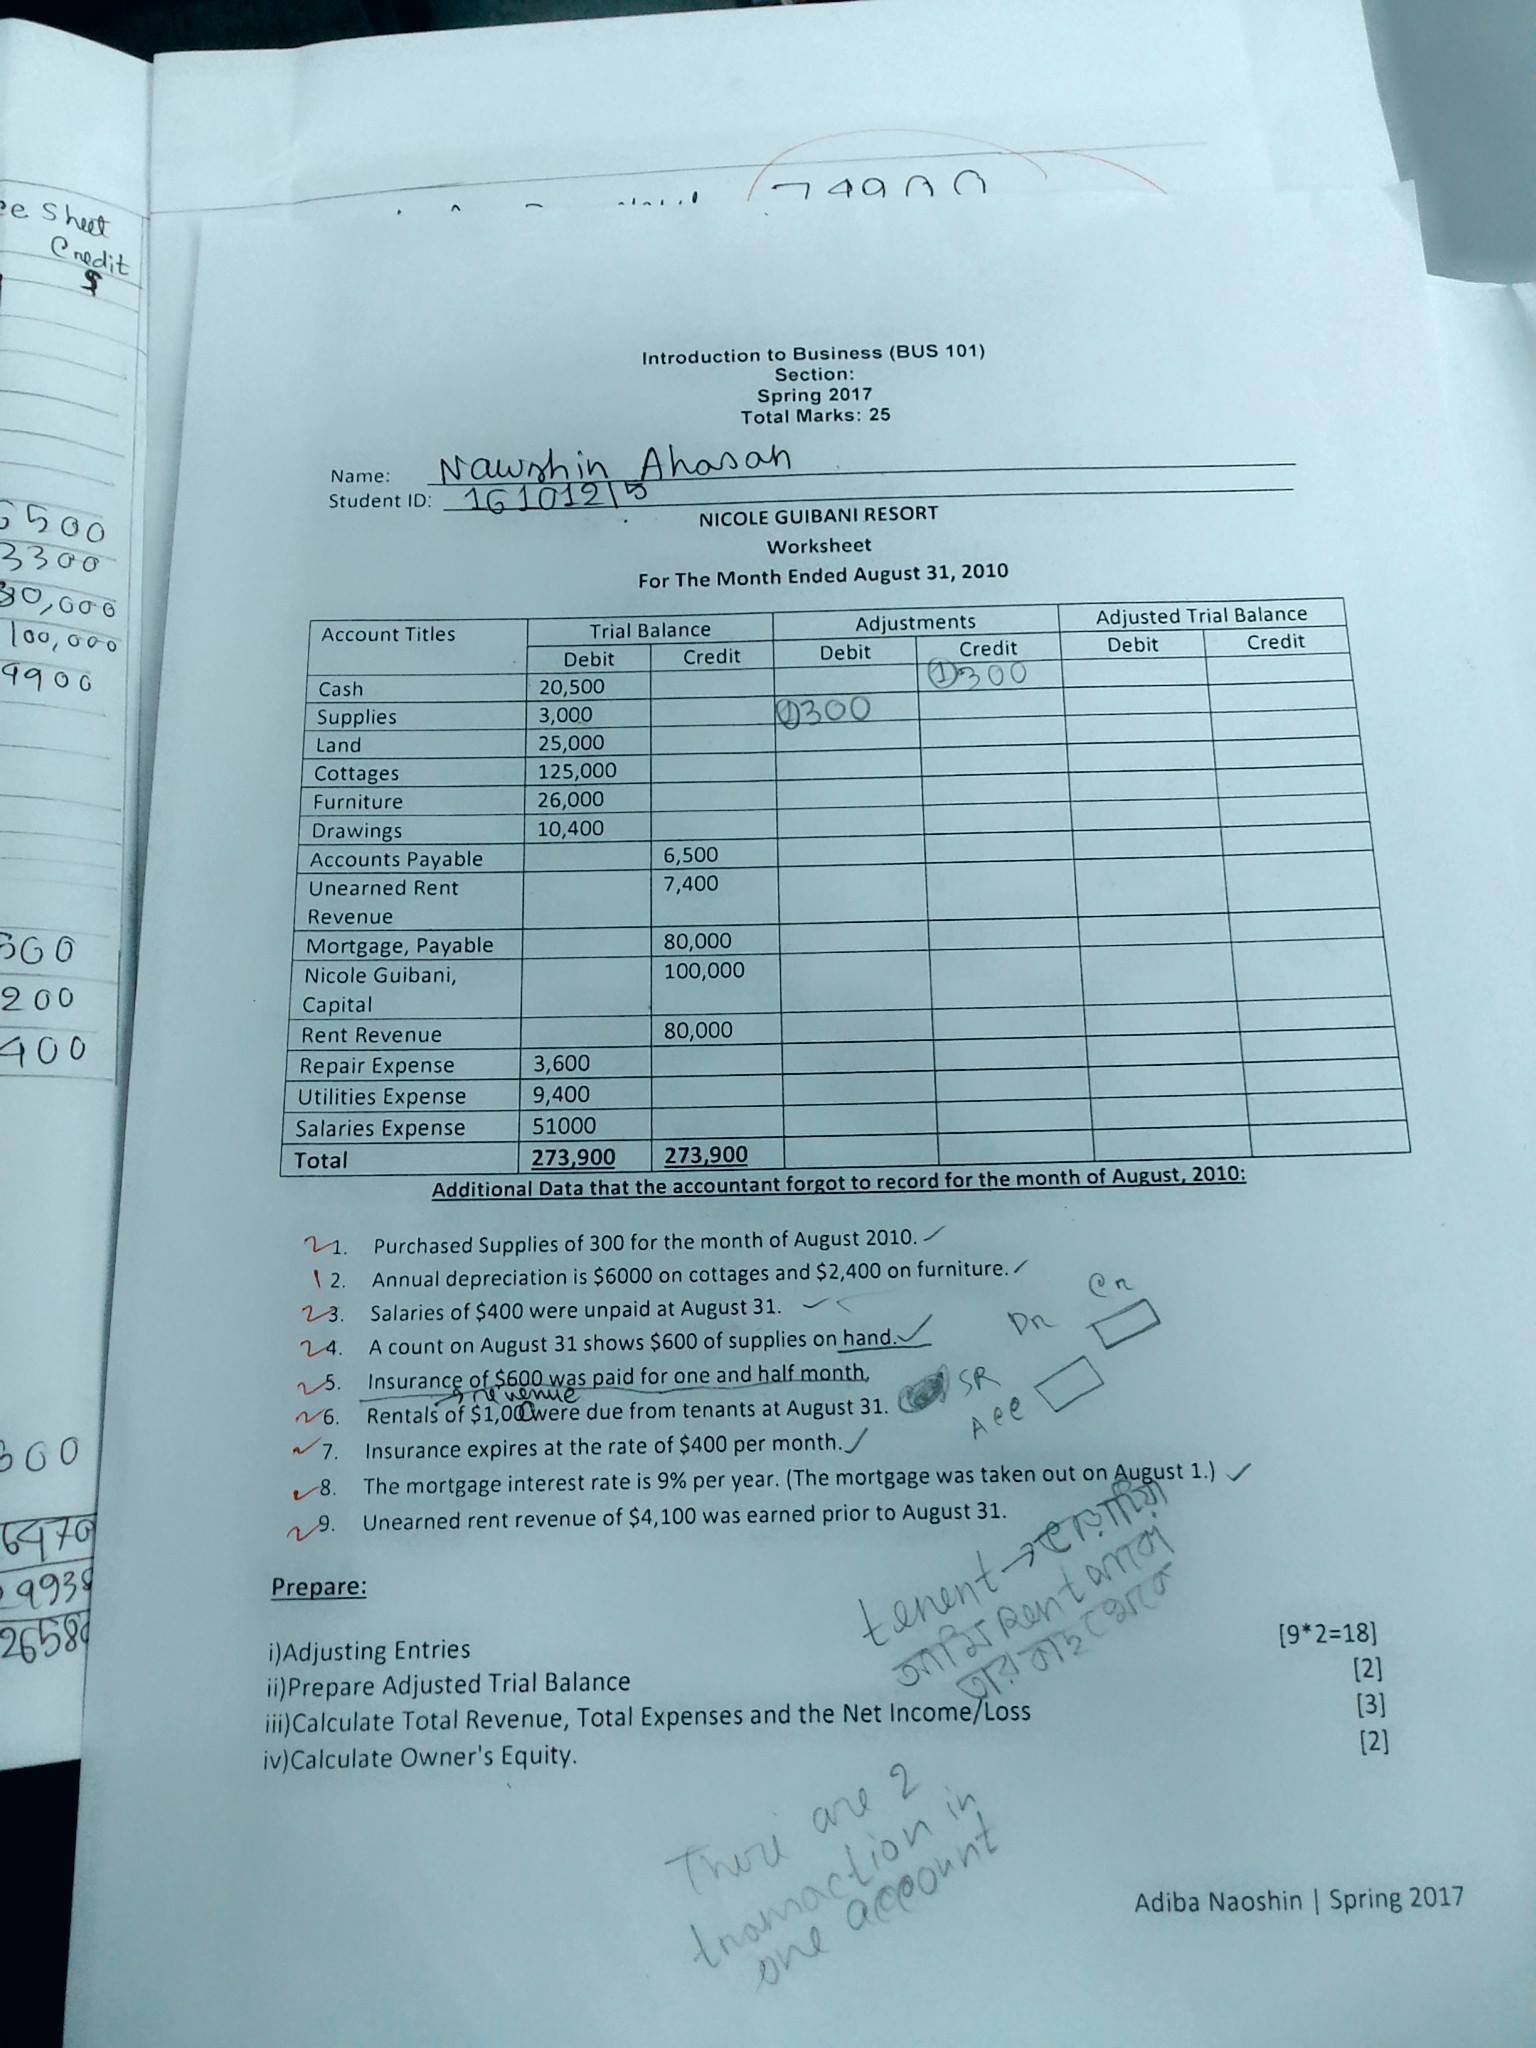 e Sheet
Credit
$
6500
3300
80,000
100,000
9900
200
400
300
Introduction to Business (BUS 101)
Section:
Spring 2017
Total Marks: 25
Name: Nawshin Ahasan
Student ID: 16101215
NICOLE GUIBANI RESORT
Worksheet
For The Month Ended August 31, 2010
Account Titles Trial Balance Adjustments Adjusted Trial Balance
Debit Credit Debit Credit Debit Credit
Cash 20,500 ① 300
Supplies 3,000 ① 300
Land 25,000
Cottages 125,000
Furniture 26,000
Drawings 10,400
Accounts Payable 6,500
Unearned Rent 7,400
Revenue
Mortgage, Payable 80,000
Nicole Guibani, 100,000
Capital
Rent Revenue 80,000
Repair Expense 3,600
Utilities Expense 9,400
Salaries Expense 51000
Total 273,900 273,900
Additional Data that the accountant forgot to record for the month of August, 2010:
1. Purchased Supplies of 300 for the month of August 2010.
2. Annual depreciation is $6000 on cottages and $2,400 on furniture.
3. Salaries of $400 were unpaid at August 31.
4. A count on August 31 shows $600 of supplies on hand.
5. Insurance of $600 was paid for one and half month,
revenue
6. Rentals of $1,000 were due from tenants at August 31.
7. Insurance expires at the rate of $400 per month.
8. The mortgage interest rate is 9% per year. (The mortgage was taken out on August 1.)
9. Unearned rent revenue of $4,100 was earned prior to August 31.
Dr Cr
SR
Acc
tenent →
Prepare:
i)Adjusting Entries [9*2=18]
ii)Prepare Adjusted Trial Balance [2]
iii)Calculate Total Revenue, Total Expenses and the Net Income/Loss [3]
iv)Calculate Owner's Equity. [2]
There are 2
transaction in
one account
Adiba Naoshin | Spring 2017